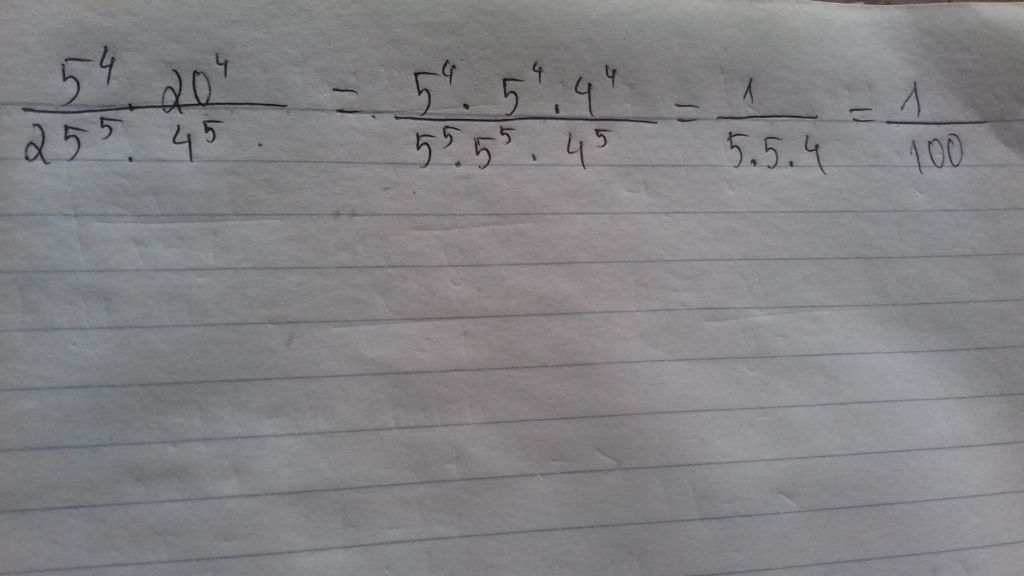 5⁴ · 20⁴ / 25⁵ · 4⁵ · = 5⁴ · 5⁴ · 4⁴ / 5⁵ · 5⁵ · 4⁵ = 1 / 5.5.4 = 1 / 100